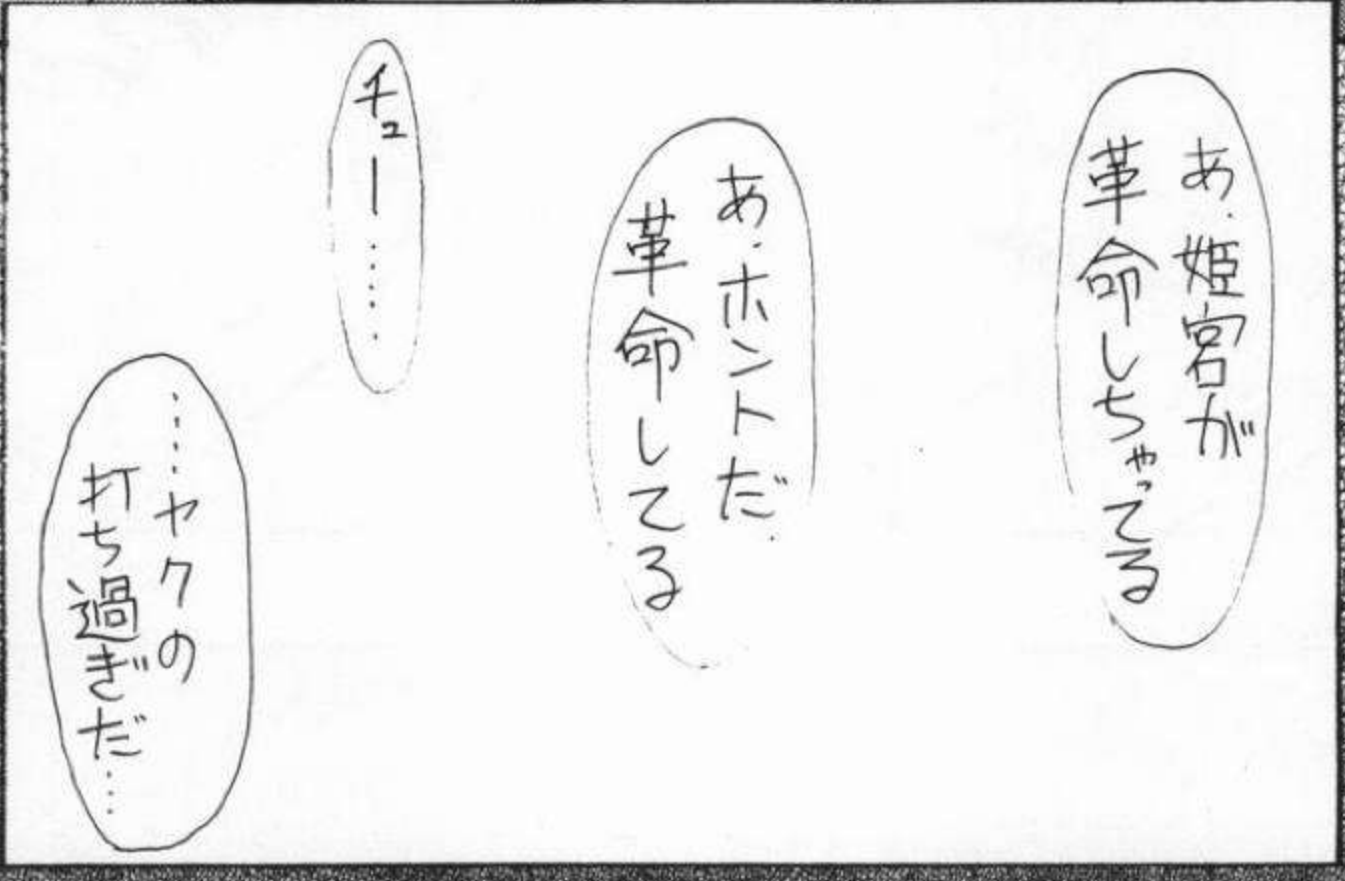 あ、姫宮が
革命しちゃってる
あ、ホントだ、
革命してる
チュー……
……ヤクの
打ち過ぎだ……